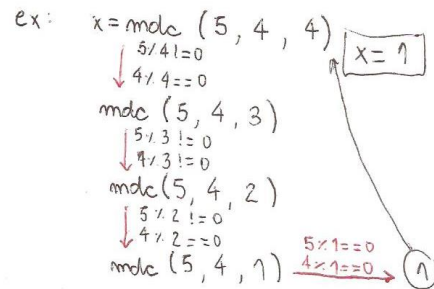 ex: x = mdc (5, 4, 4)
5%4!=0
4%4==0
x = 1
mdc (5, 4, 3)
5%3!=0
4%3!=0
mdc (5, 4, 2)
5%2!=0
4%2==0
mdc (5, 4, 1)
5%1==0
4%1==0
1